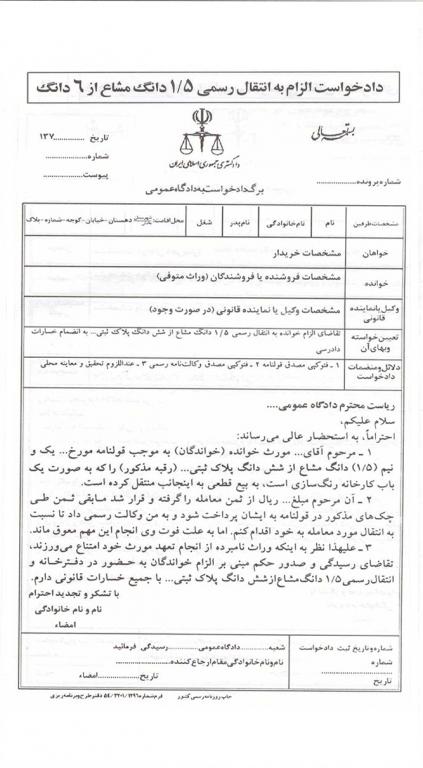 دادخواست الزام به انتقال رسمی ۱/۵ دانگ مشاع از ۶ دانگ
بسمه تعالی
تاریخ .............. ۱۳۷
شماره......................
پیوست....................
دادگستری جمهوری اسلامی ایران
شماره پرونده......................
برگ دادخواست به دادگاه عمومی
مشخصات طرفین نام نام خانوادگی نام پدر شغل محل اقامت: دهستان -خیابان-کوچه-شماره-پلاک
خواهان مشخصات خریدار
خوانده مشخصات فروشنده یا فروشندگان (وراث متوفی)
وکیل یا نماینده قانونی مشخصات وکیل یا نماینده قانونی (در صورت وجود)
تعیین خواسته وبهای آن تقاضای الزام خوانده به انتقال رسمی ۱/۵ دانگ مشاع از شش دانگ پلاک ثبتی... به انضمام خسارات دادرسی
دلائل و منضمات دادخواست ۱ ـ فتوکپی مصدق قولنامه ۲ ـ فتوکپی مصدق وکالت‌نامه رسمی ۳ ـ عنداللزوم تحقیق و معاینه محلی
ریاست محترم دادگاه عمومی....
سلام علیکم،
احتراماً، به استحضار عالی می‌رساند:
۱ ـ مرحوم آقای... مورث خوانده (خواندگان) به موجب قولنامه مورخ... یک و
نیم (۱/۵) دانگ مشاع از شش دانگ پلاک ثبتی... (رقبه مذکور) را که به صورت یک
باب کارخانه رنگ‌سازی است، به بیع قطعی به اینجانب منتقل کرده است.
۲ ـ آن مرحوم مبلغ... ریال از ثمن معامله را گرفته و قرار شد مابقی ثمن طی
چک‌های مذکور در قولنامه به ایشان پرداخت شود و به من وکالت رسمی داد تا نسبت
به انتقال مورد معامله به خود اقدام کنم. اما به علت فوت وی انجام این مهم معوق ماند.
۳ ـ علیهذا نظر به اینکه وراث نامبرده از انجام تعهد مورث خود امتناع می‌ورزند،
تقاضای رسیدگی و صدور حکم مبنی بر الزام خواندگان به حضور در دفترخانه و
انتقال رسمی ۱/۵ دانگ مشاع از شش دانگ پلاک ثبتی... با جمیع خسارات قانونی دارم.
با تشکر و تجدید احترام
نام و نام خانوادگی
امضاء
شماره و تاریخ ثبت دادخواست
شماره
تاریخ
شعبه............دادگاه عمومی..................رسیدگی فرمائید
نام و نام خانوادگی مقام ارجاع کننده......................
تاریخ......................امضاء
چاپ روزنامه رسمی کشور فرم شماره ۱۲۹۶/ ۲۲۰۱/ ۵۴ دفتر طرح و برنامه ریزی